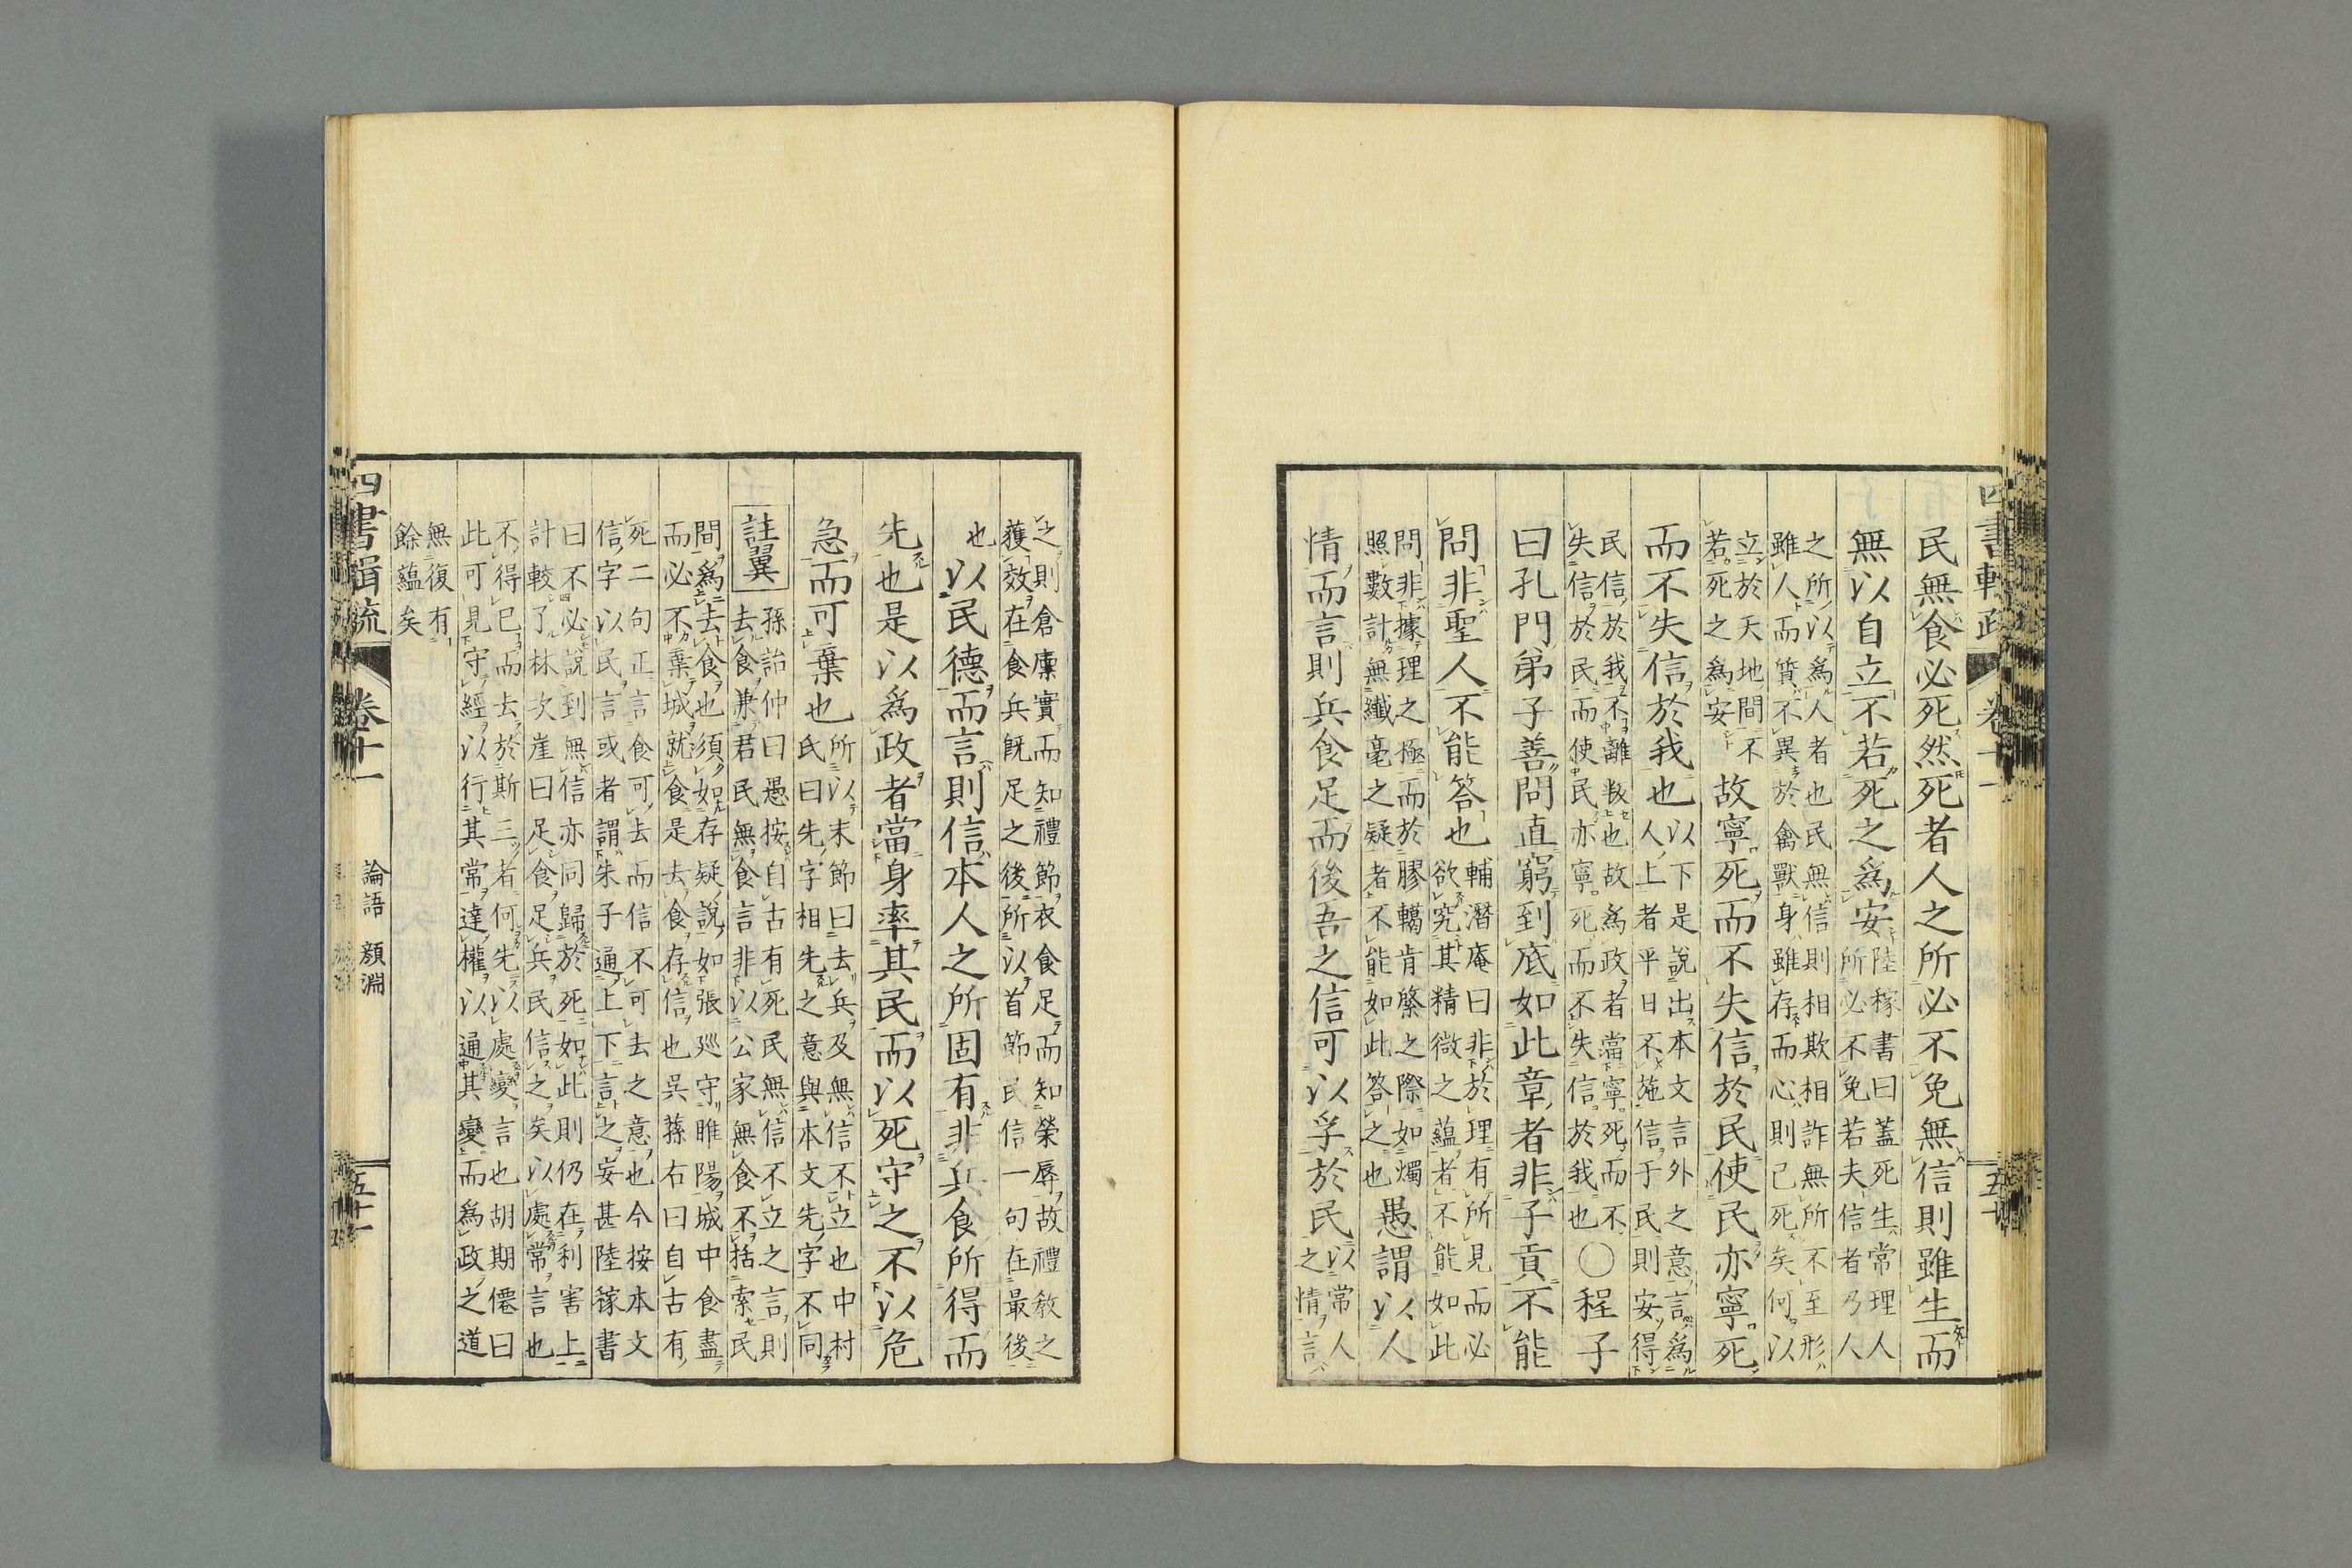 民無食必死然死者人之所必不免無信則雖生而
無以自立不若死之爲安陸稼書曰蓋死生常理人
所必不免若夫信者乃人
之所以爲人者也民無信則相欺相詐無所不至形
雖人而質不異於禽獸身雖存而心則已死矣何以
立於天地間不
若死之爲安
故寧死而不失信於民使民亦寧死
而不失信於我也以下是說出本文言外之意言爲
人上者平日不施信于民則安得
民信於我不離叛也故爲政者當寧死而不
失信於民而使民亦寧死而不失信於我也
〇程子
曰孔門弟子善問直窮到底如此章者非子貢不能
問非聖人不能答也輔潛庵曰非於理有所見而必
欲究其精微之蘊者不能如此
問非據理之極而於膠轕肯綮之際如燭
照數計無纖毫之疑者不能如此答之也
愚謂以人
情而言則兵食足而後吾之信可以孚於民以常人
之情言
之則倉廩實而知禮節衣食足而知榮辱故禮教之
蓰效在食兵既足之後所以首節民信一句在最後
也以民德而言則信本人之所固有非兵食所得而
先也是以爲政者當身率其民而以死守之不以危
急而可棄也所以末節曰去兵及無信不立也中村
氏曰先字相先之意與本文先字不同
註翼
孫詒仲曰愚按自古有死民無信不立之言則
去食兼君民無食言非以公家無食不括索民
間爲去食也須如存疑說如張巡守睢陽城中食盡
而必不棄城就食是去食存信也吳蓀右曰自古有
死二句正言食可去而信不可去之意也今按本文
信字以民言或者謂朱子通上下言之妄甚陸稼書
曰不必說到無信亦同歸於死如此則仍在利害上
計較了林次崖曰足食足兵民信之矣以處常言也
不得已而去於斯三者何先以處變言也胡期僊曰
此可見守經以行其常達權以通其變而爲政之道
無復有
餘蘊矣
四書輯疏
卷十一
論語 顏淵
五十一